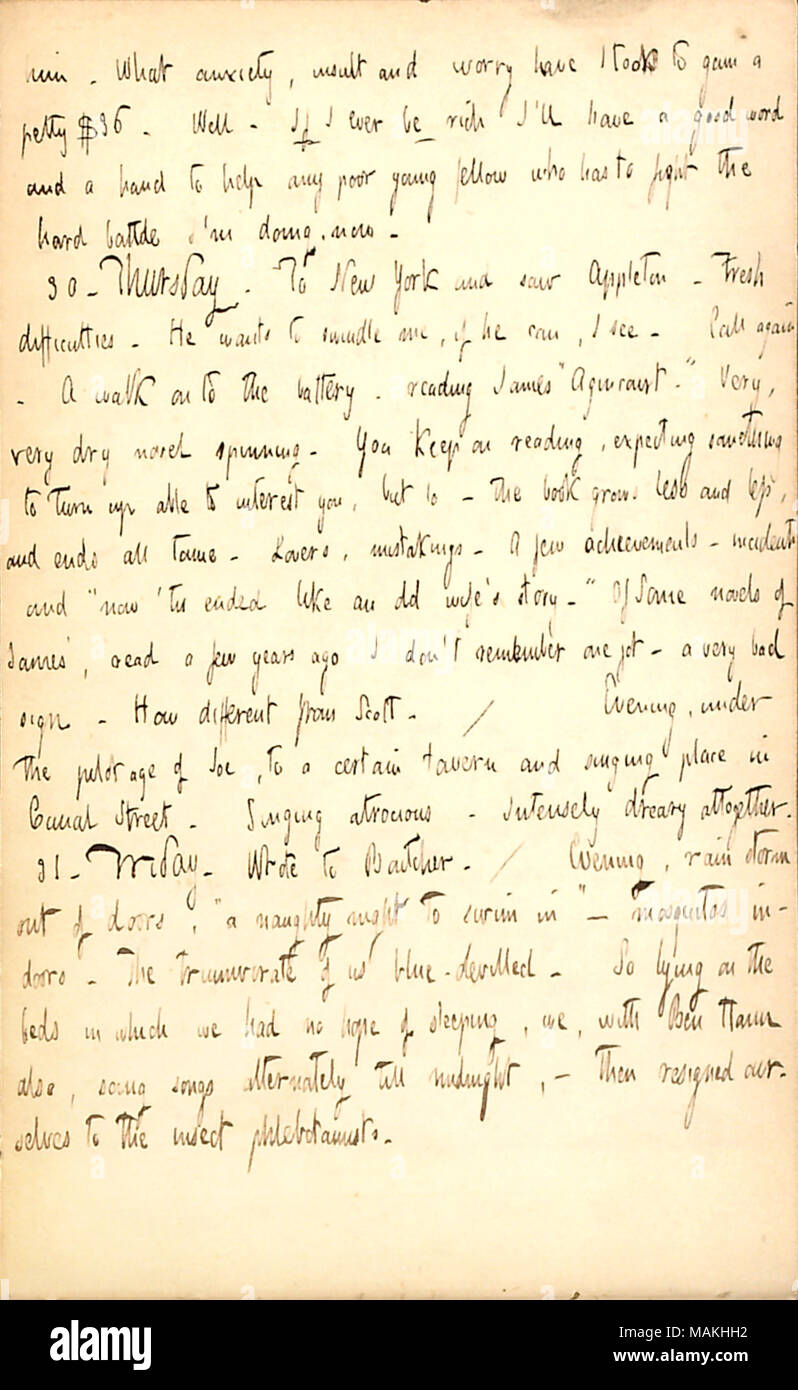 him. What anxiety, insult and worry have I took to gain a
petty $36. Well. If I ever be rich I'll have a good word
and a hand to help any poor young fellow who has to fight the
hard battle I'm doing now.
30. Thursday. To New York and saw Appleton. Fresh
difficulties. He wants to swindle me, if he can, I see. Call again
. A walk on to the battery. reading James "Agincourt." Very,
very dry novel spinning. You keep on reading, expecting something
to turn up able to interest you, but lo - the book grows less and less,
and ends all tame. Lovers, mistakings. A few achievements - incidents
and "now 'tis ended like an old wife's story." Of some novels of
James', read a few years ago I don't remember one jot - a very bad
sign. How different from Scott. / Evening, under
the pilotage of Joe, to a certain tavern and singing place in
Canal Street. Singing atrocious. Intensely dreary altogether.
31. Friday. Wrote to Boutcher. / Evening, rain storm
out of doors, "a naughty night to swim in" - mosquitos in-
doors. The triumvirate of us blue-devilled. So lying on the
beds in which we had no hope of sleeping, we, with Ben Hann
also, sang songs alternately till midnight, - then resigned our-
selves to the insect phlebotamists.
alamy
Image ID: MAKHH2
www.alamy.com